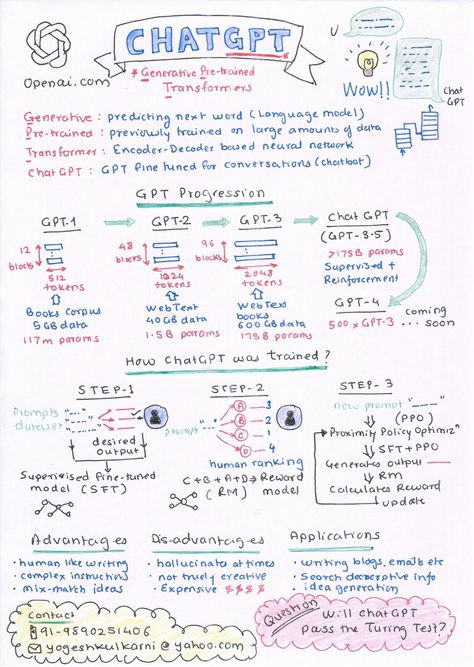 CHATGPT
Openai.com
* Generative Pre-trained
Transformers
U
Wow!!
Chat
GPT
Generative : predicting next word (Language model)
Pre-trained : previously trained on large amounts of data
Transformer : Encoder-Decoder based neural network
Chat GPT : GPT fine tuned for conversations (chatbot)
GPT Progression
GPT-1
GPT-2
GPT-3
Chat GPT
(GPT-3.5)
12
blocks
512
tokens
48
blocks
1024
tokens
96
blocks
2048
tokens
>175B params
Supervised +
Reinforcement
Books corpus
5GB data
117m params
WebText
40GB data
1.5B params
WebText
books
600GB data
175B params
GPT-4
500 x GPT-3
coming
... soon
How ChatGPT was trained?
STEP-1
Prompts
dataset
desired
output
Supervised fine-tuned
model (SFT)
STEP-2
prompt
A 3
B 2
C 1
D 4
human ranking
C+B+A+D → Reward
(RM) model
STEP-3
new prompt
(PPO)
Proximity Policy Optimizn
SFT+PPO
Generates output
RM
Calculates Reward
update
Advantages
• human like writing
• complex instructns
• mix-match ideas
Dis-advantages
• hallucinate at times
• not truely creative
• Expensive $ $ $ $
Applications
• writing blogs, emails etc
• Search descriptive info
• idea generation
Contact
91-9890251406
yogeshkulkarni@yahoo.com
Question
Will chatGPT
pass the Turing Test?